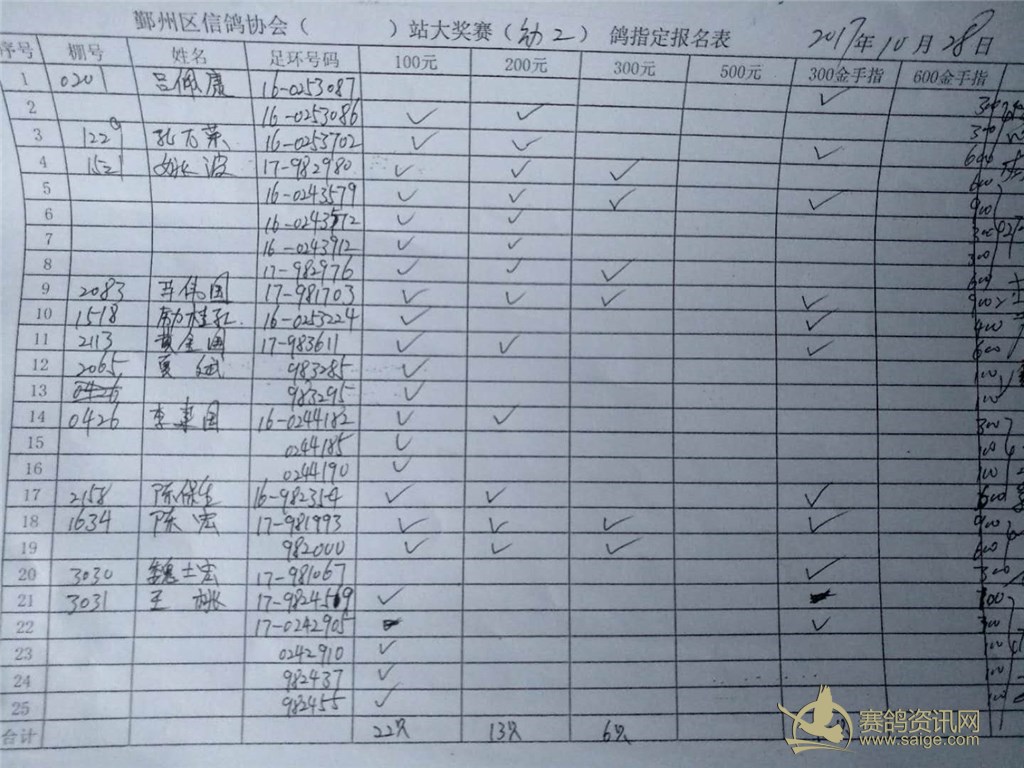 鄞州区信鸽协会（ ）站大奖赛（幼2） 鸽指定报名表 2017年10月28日
序号 棚号 姓名 足环号码 100元 200元 300元 500元 300金手指 600金手指
1 0201 16-0253087 ✓ 300
2 16-0253086 ✓ ✓ 300
3 1229 16-0253702 ✓ ✓ ✓ 600
4 1521 姚波 17-982980 ✓ ✓ ✓ 600
5 16-0243579 ✓ ✓ ✓ ✓ 900
6 16-0243572 ✓ ✓ 300
7 16-0243912 ✓ ✓ 300
8 17-982976 ✓ ✓ ✓ 600
9 2083 17-981703 ✓ ✓ ✓ ✓ 900
10 1518 16-0253224 ✓ ✓ 400
11 2113 黄金国 17-983611 ✓ ✓ ✓ 600
12 2065 夏斌 983285 ✓ 100
13 0426 983295 ✓ 100
14 0426 李菜国 16-0244182 ✓ ✓ 300
15 0244185 ✓ 100
16 0244190 ✓ 100
17 2158 陈保生 16-982354 ✓ ✓ ✓ 600
18 1634 陈宏 17-981993 ✓ ✓ ✓ ✓ 900
19 982000 ✓ ✓ ✓ 600
20 3030 魏士宏 17-981067 ✓ 300
21 3031 王 17-982459 ✓ 100
22 17-0242905 ✓ 300
23 0242910 ✓ 100
24 982437 ✓ 100
25 982455 ✓ 100
合计 22只 13只 6只
赛鸽资讯网
www.saige.com